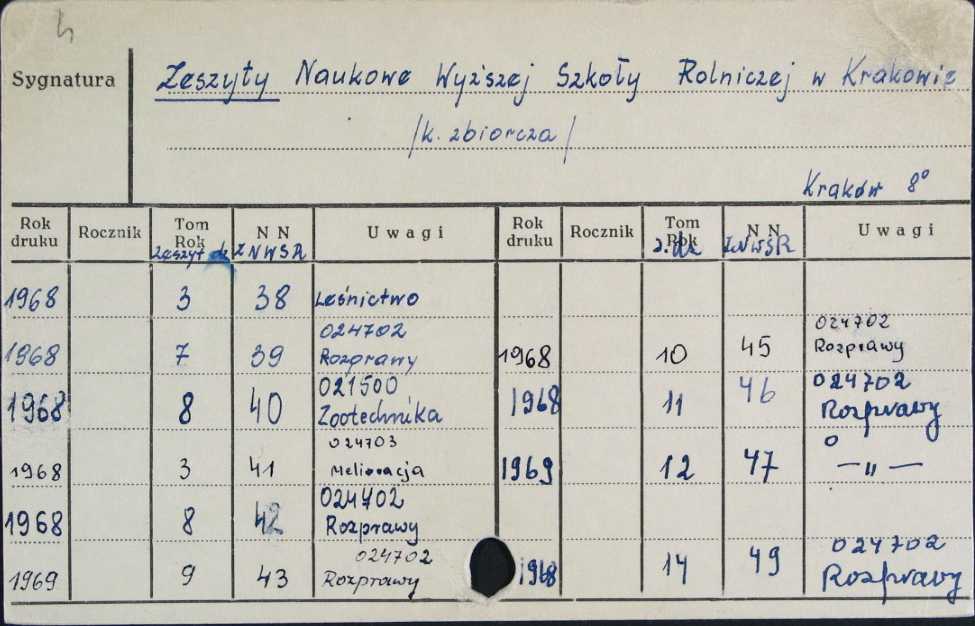 Sygnatura
Zeszyty Naukowe Wyższej Szkoły Rolniczej w Krakowie
/k. zbiorcza/
Kraków 8°
Rok druku Rocznik Tom Rok N N Uwagi Rok druku Rocznik Tom Rok N N Uwagi
Zeszyt dz ZNWSR z. dz ZNWSR
1968 3 38 Leśnictwo
024702 024702
1968 7 39 Rozprawy 1968 10 45 Rozprawy
021500 024702
1968 8 40 Zootechnika 1968 11 46 Rozprawy
024703 0
1968 3 41 Melioracja 1969 12 47 —"—
024702
1968 8 42 Rozprawy
024702 024702
1969 9 43 Rozprawy 1968 14 49 Rozprawy